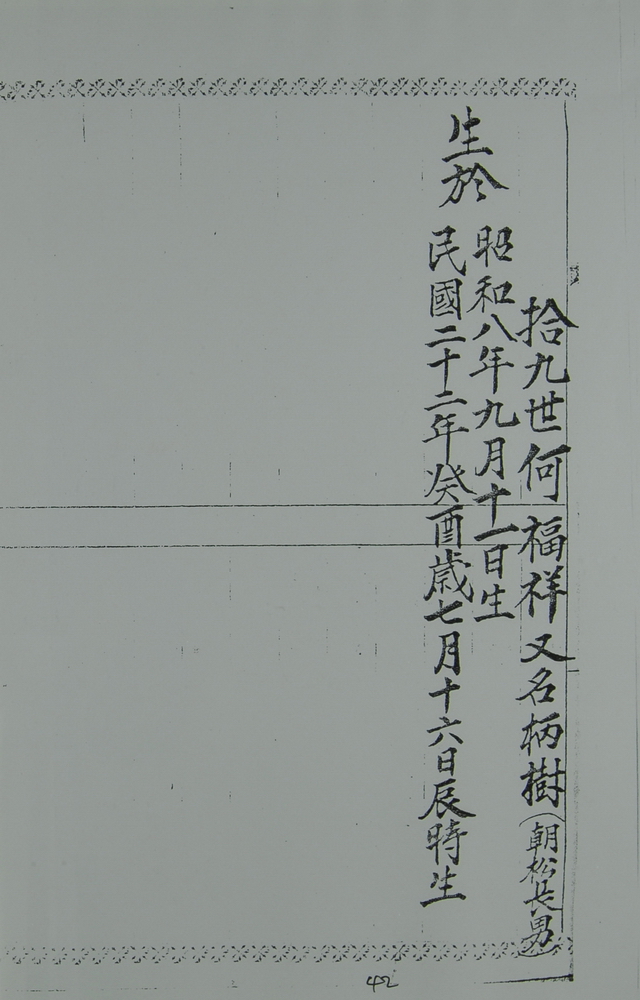 拾九世何福祥又名柄樹(朝松長男)
昭和八年九月十一日生
生於
民國二十二年癸酉歲七月十六日辰時生
42